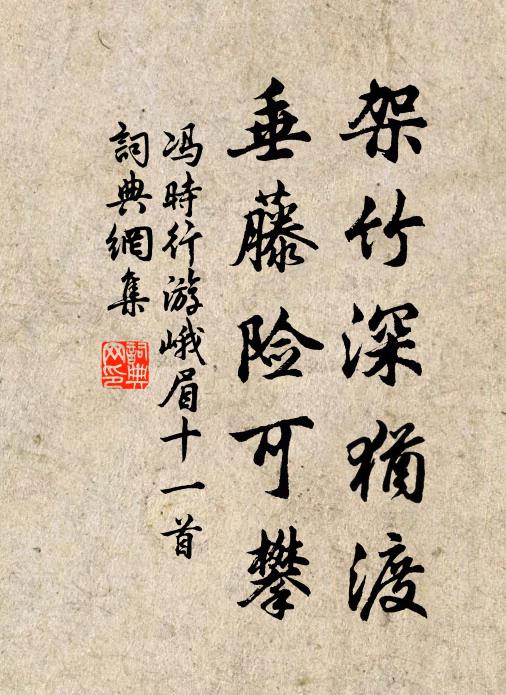 架竹深猶渡
垂藤险可攀
冯時行游峨眉十一首
詞典網集
詞典網印